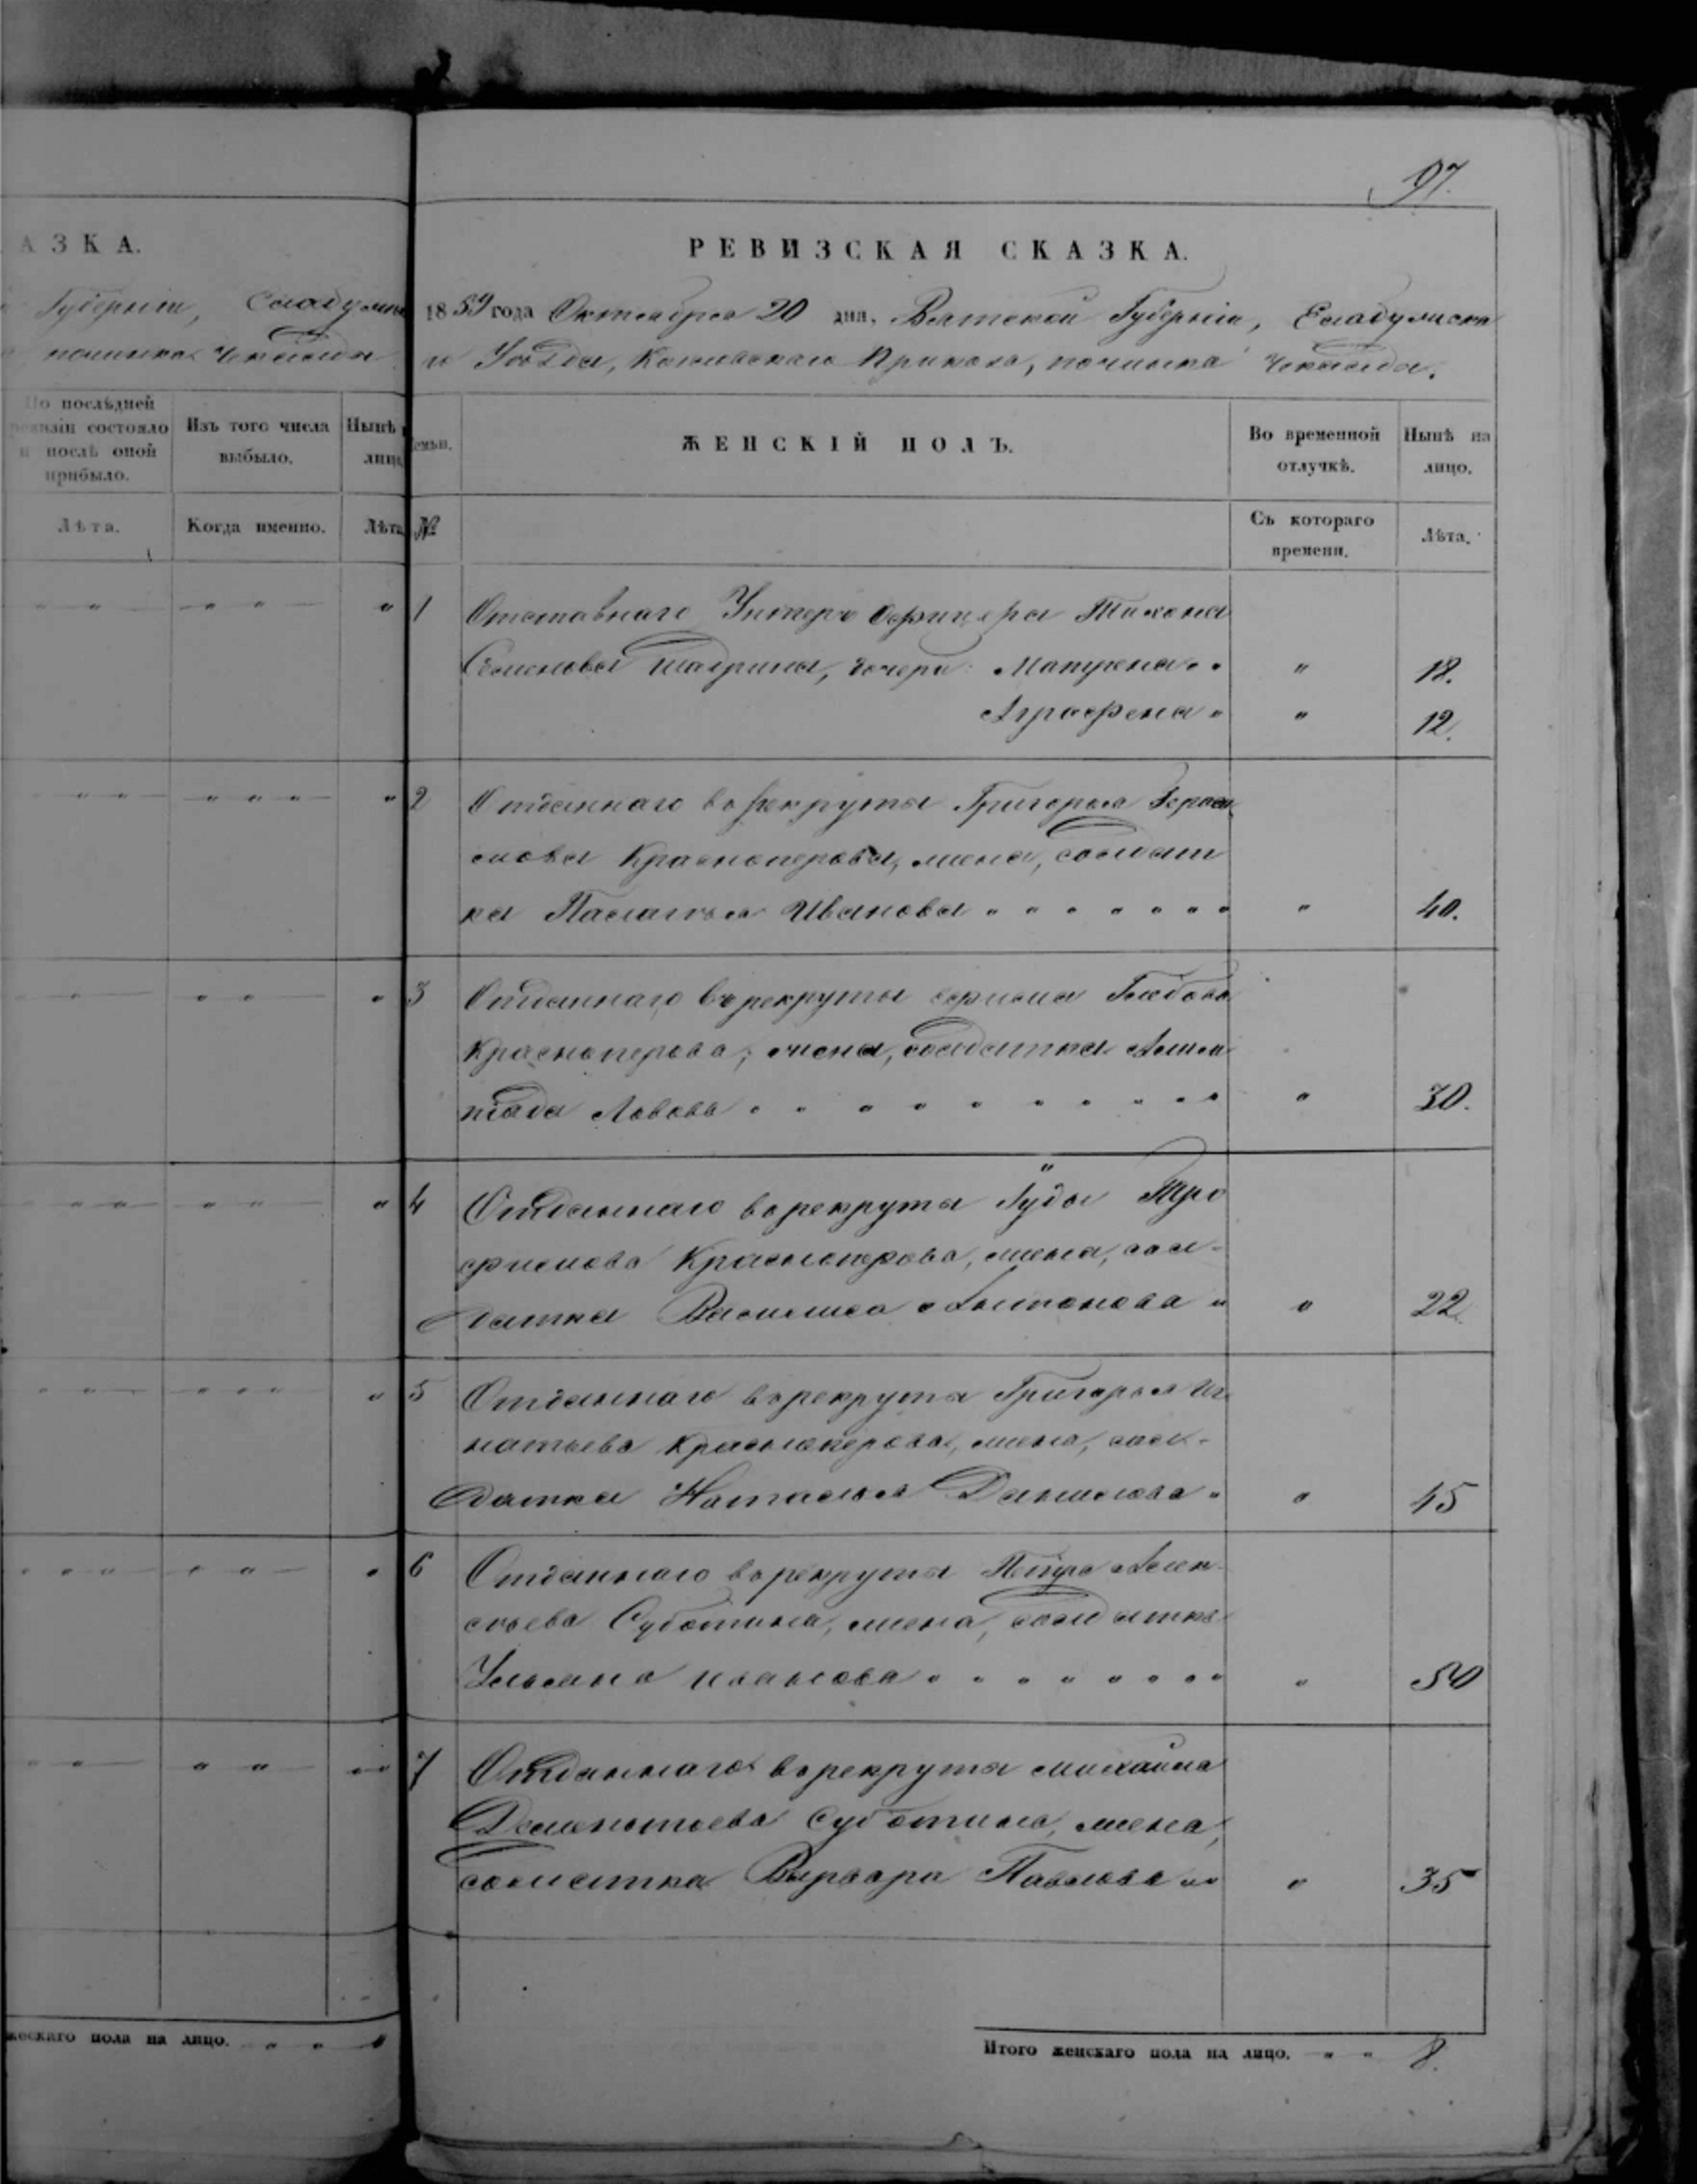 97.
АЗКА.
Губерніи, Елабужска
починка Чекалда
По послѣдней ревизіи состояло и послѣ оной прибыло.
Изъ того числа выбыло.
Нынѣ лицо
Лѣта.
Когда именно.
Лѣта
жескаго пола на лицо.
РЕВИЗСКАЯ СКАЗКА.
1859 года Октября 20 дня, Вятской Губерніи, Елабужска
го Уѣзда, Приказа, починка
семьи.
ЖЕНСКІЙ ПОЛЪ.
Во временной отлучкѣ.
Нынѣ на лицо.
№
Съ котораго времени.
Лѣта.
1 Отставнаго Унтеръ Офицера Тихона
Семенова Шадрина, дочери: Матрена " " 18.
Аграфена " " 12.
2 Отданнаго въ рекруты Григорья Гераси
мова Красноперова, жена, солдат
ка Палагья Иванова " " 40.
3 Отданнаго въ рекруты Глебова
Красноперова, жена, солдатка
Львова " " 30.
4 Отданнаго въ рекруты Іуды Тро
фимова Красноперова, жена, сол-
датка Василиса Антонова " " 22.
5 Отданнаго въ рекруты Григорья Иг
натьева Красноперова, жена, сол-
датка Наталья Данилова " " 45
6 Отданнаго въ рекруты Петра Алек
сѣева Суботина, жена, солдатка
Ульяна Иванова " " 50
7 Отданнаго въ рекруты Михаила
Дементьева Суботина, жена,
солдатка Варвара Павлова " " 35
Итого женскаго пола на лицо. " " 8.